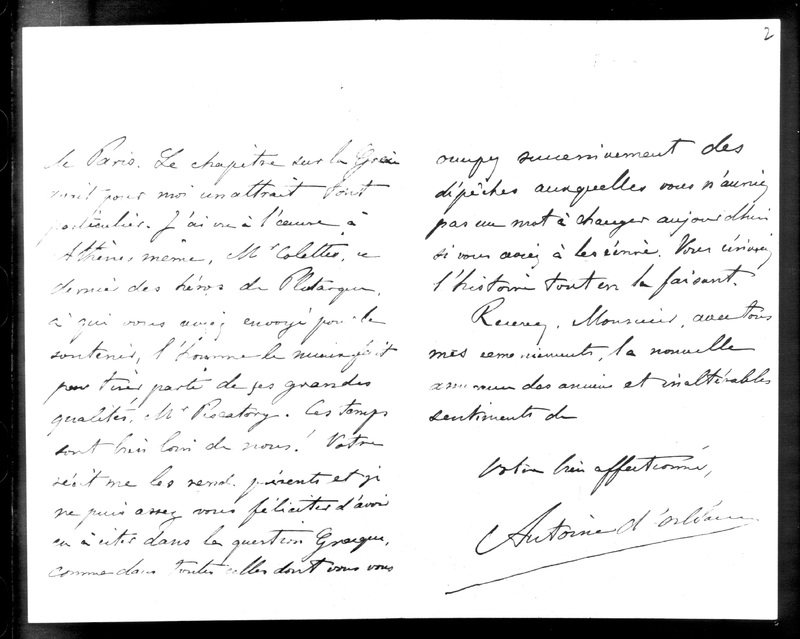 2
de Paris. Le chapitre sur la Grèce
avait pour moi un attrait tout
particulier. J'ai vu à l'œuvre, à
Athènes même, Mr Colettis, ce
dernier des héros de Plutarque,
à qui vous aviez envoyé pour le
soutenir, l'homme le mieux fait
pour tirer parti de ses grandes
qualités, Mr Piscatory. Ces temps
sont bien loin de nous! Votre
récit me les rend présents et je
ne puis assez vous féliciter d'avoir
eu à citer dans la question Grecque,
comme dans toutes celles dont vous vous
occupez successivement des
dépêches auxquelles vous n'auriez
pas un mot à changer aujourdhui
si vous aviez à les écrire. Vous écriviez
l'histoire tout en la faisant.
Recevez, Monsieur, avec tous
mes remerciements, la nouvelle
assurance des anciens et inaltérables
sentiments de
Votre bien affectionné,
Antoine d'orléans